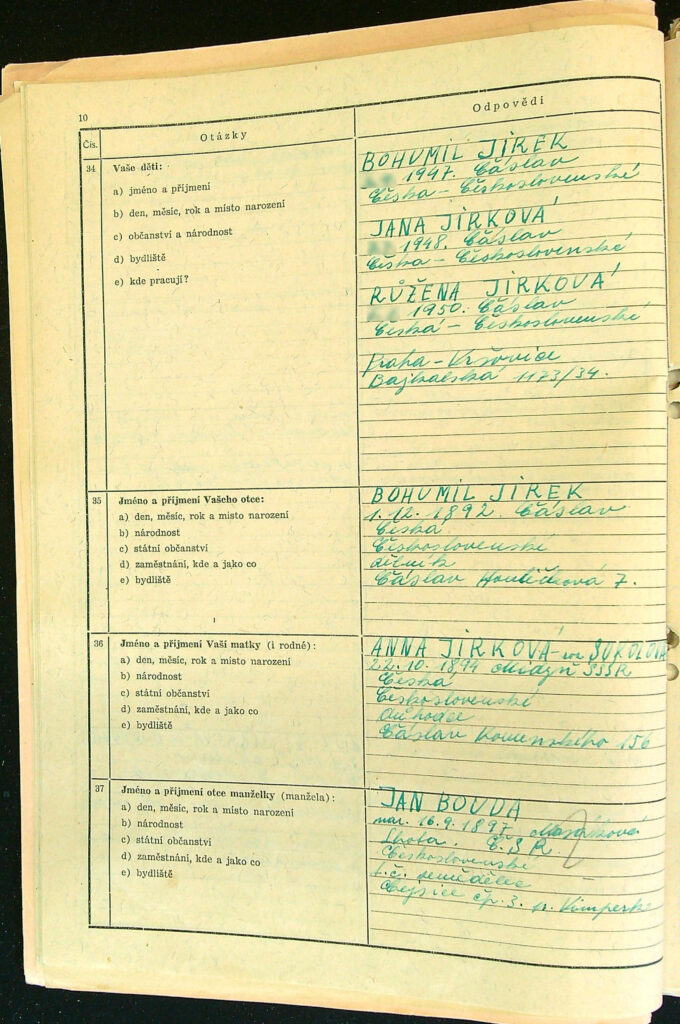 10
Čís.
Otázky
Odpovědi
34
Vaše děti:
a) jméno a příjmení
b) den, měsíc, rok a místo narození
c) občanství a národnost
d) bydliště
e) kde pracují?
BOHUMIL JÍREK
1947. Čáslav
Česká - Československé
JANA JÍRKOVÁ
1948. Čáslav
Česká - Československé
RŮŽENA JÍRKOVÁ
1950. Čáslav
Česká - Československé
Praha - Vršovice
Bajkalská 1173/34.
35
Jméno a příjmení Vašeho otce:
a) den, měsíc, rok a místo narození
b) národnost
c) státní občanství
d) zaměstnání, kde a jako co
e) bydliště
BOHUMIL JÍREK
1. 12. 1892. Čáslav
Česká
Československé
dělník
Čáslav 7.
36
Jméno a příjmení Vaší matky (i rodné):
a) den, měsíc, rok a místo narození
b) národnost
c) státní občanství
d) zaměstnání, kde a jako co
e) bydliště
ANNA JÍRKOVÁ SUKOLOVÁ
22. 10. 1894 SSSR
Česká
Československé
důchodce
Čáslav Komenského 156
37
Jméno a příjmení otce manželky (manžela):
a) den, měsíc, rok a místo narození
b) národnost
c) státní občanství
d) zaměstnání, kde a jako co
e) bydliště
JAN BOUDA
nar. 16. 9. 1897
Lhota. Č.S.R.
Československé
t.č. zemědělec
čp. 3. Vimperka